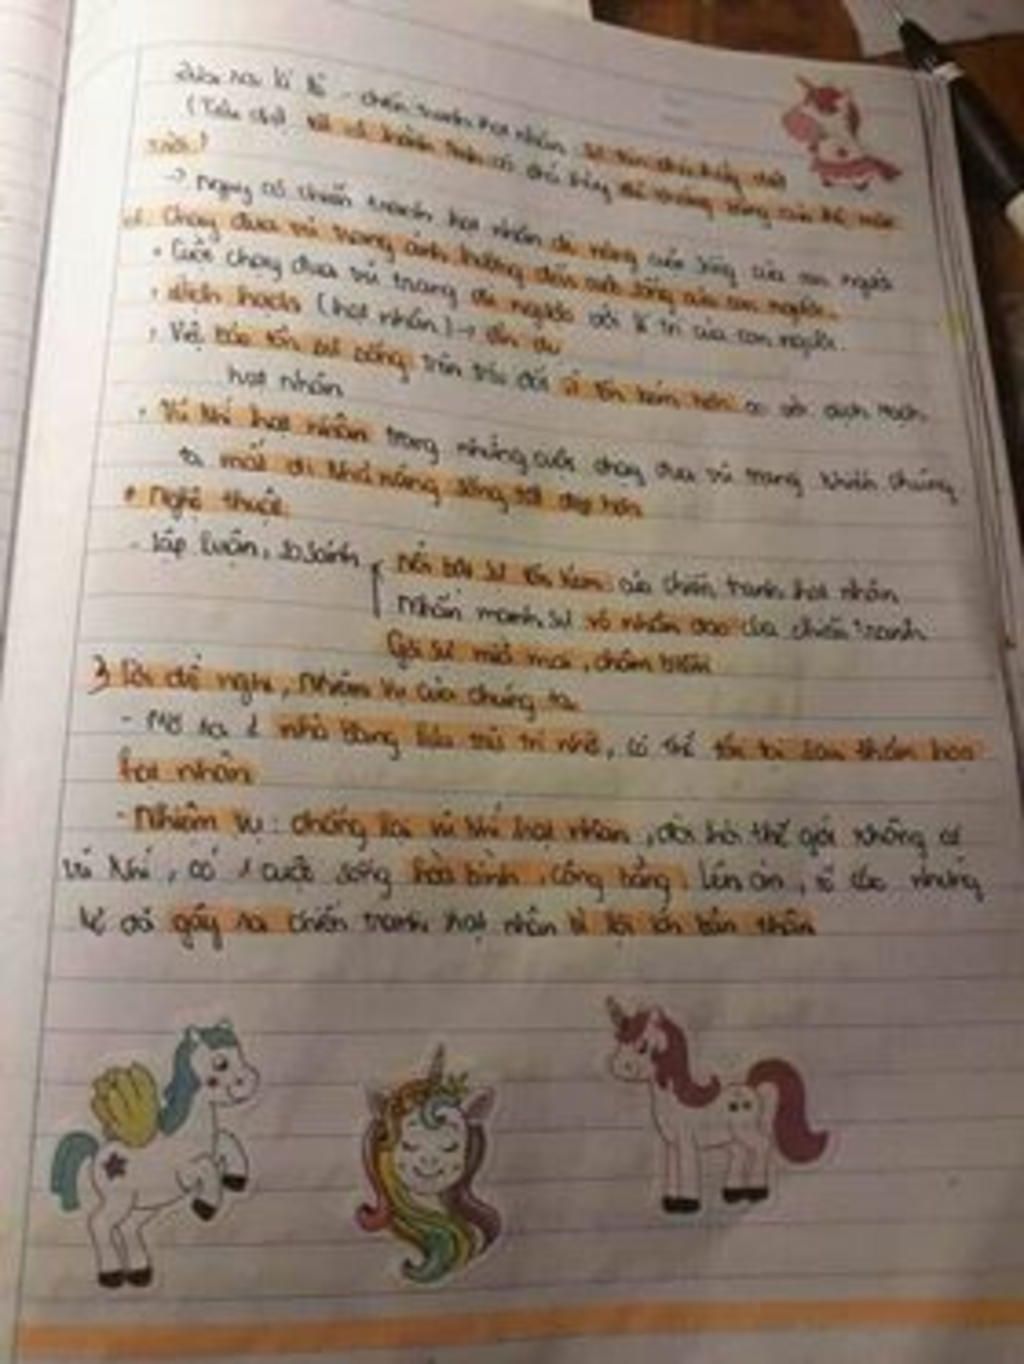 Đưa ra lí lẽ - chiến tranh hạt nhân sẽ
(Tiêu diệt tất cả hành tinh
trời!
-> Nguy cơ chiến tranh hạt nhân đe nặng cuộc sống của con người
2. Chạy đua vũ trang ảnh hưởng đến cuộc sống của con người.
• Cuộc chạy đua vũ trang đi ngược với lí trí của con người.
• dịch hạch (hạt nhân) ->
• Việc bảo tồn sự sống trên trái đất ít tốn kém hơn so với dịch hạch
hạt nhân
• Vũ khí hạt nhân trong những cuộc chạy đua vũ trang khiến chúng
ta mất đi khả năng sống tốt đẹp hơn
* Nghệ thuật:
- Lập luận, so sánh Nổi bật sự tốn kém của chiến tranh hạt nhân
Nhấn mạnh sự vô nhân đạo của chiến tranh
Gợi sự mỉa mai, châm biếm
3 Lời đề nghị, Nhiệm vụ của chúng ta
- Mở ra 1 nhà băng lưu trữ trí nhớ, có thể tồn tại sau thảm họa
hạt nhân
- Nhiệm vụ: chống lại vũ khí hạt nhân, đòi hỏi thế giới không có
vũ khí, có 1 cuộc sống hoà bình, công bằng. Lên án, tố cáo những
kẻ đã gây ra chiến tranh hạt nhân vì lợi ích bản thân